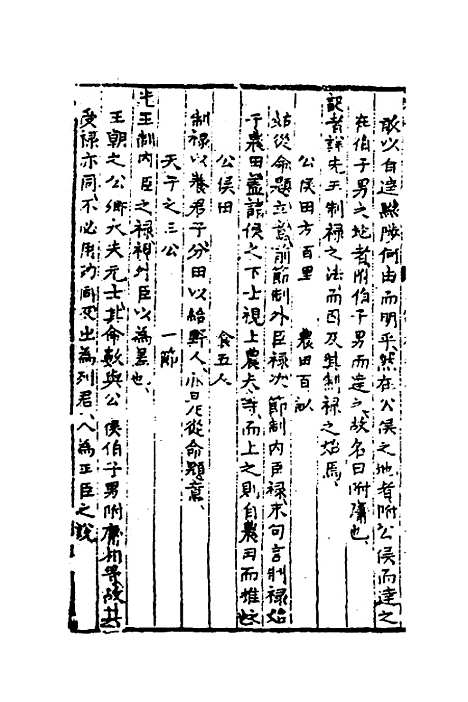 敢以自達黜陟何由而明乎然在公侯之地者附公侯而達之
在伯子男之地者附伯子男而達之故名曰附庸也
記者詳先王制祿之法而因及其制祿之始焉
公侯田方百里　農田百畝
始從命題立意前節制外臣祿次節制內臣祿末句言制祿始
于農田蓋諸侯之下士視上農夫等而上之則自農田而推
公侯田　食五人
制祿以養君子分田以給野人亦曰從命題意
天子之三公　一節
先王制內臣之祿視外臣以為差也
王朝之公卿大夫元士其命數與公侯伯子男附庸相等故其
受祿亦同不必用出為列君入為王臣之說